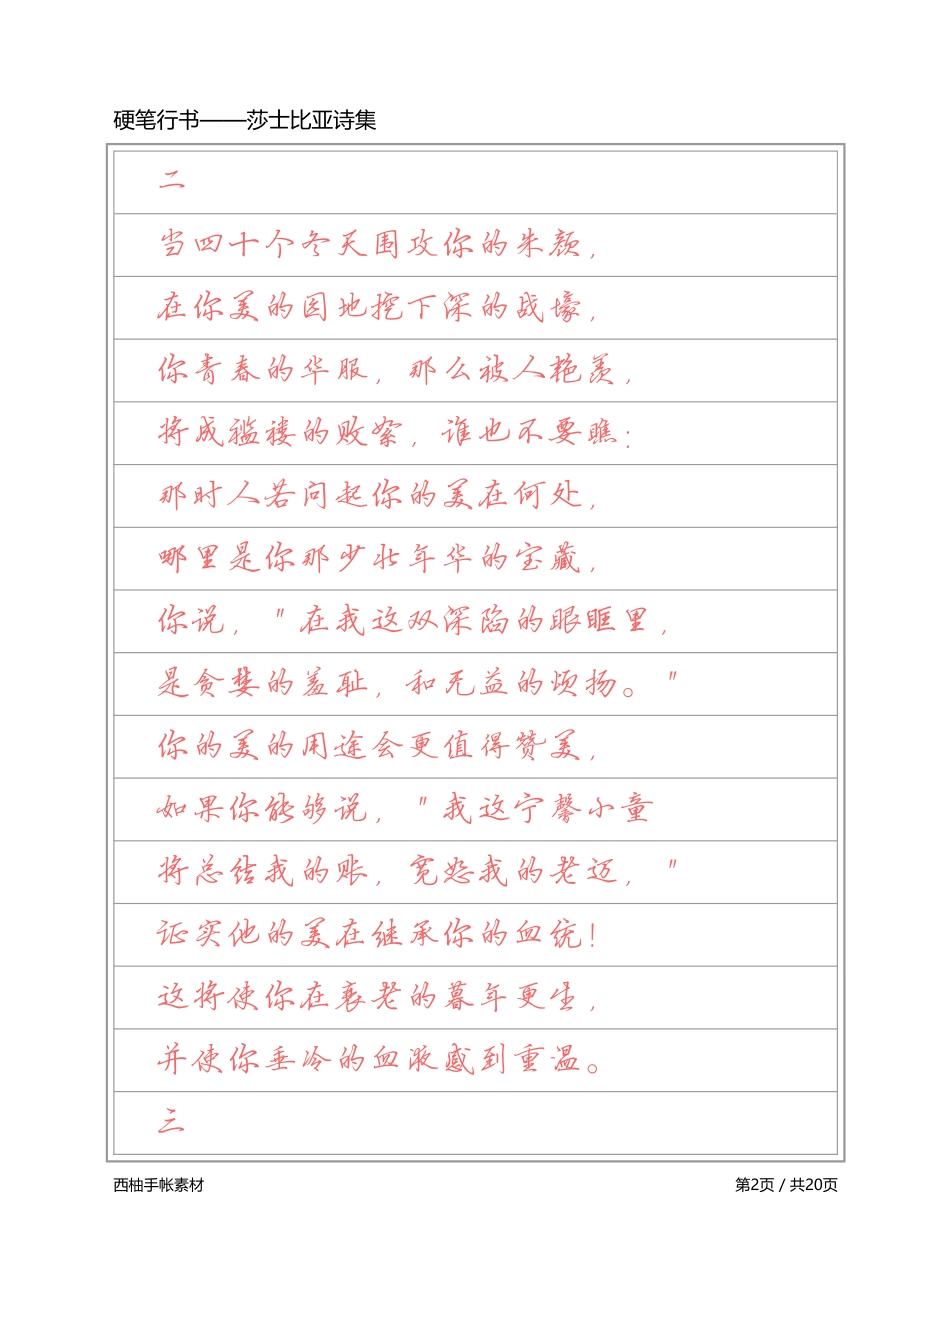 硬笔行书——莎士比亚诗集
二
当四十个冬天围攻你的朱颜，
在你美的园地挖下深的战壕，
你青春的华服，那么被人艳羡，
将成褴褛的败絮，谁也不要瞧：
那时人若问起你的美在何处，
哪里是你那少壮年华的宝藏，
你说，"在我这双深陷的眼眶里，
是贪婪的羞耻，和无益的颂扬。"
你的美的用途会更值得赞美，
如果你能够说，"我这宁馨小童
将总结我的账，宽恕我的老迈，"
证实他的美在继承你的血统！
这将使你在衰老的暮年更生，
并使你垂冷的血液感到重温。
三
西柚手帐素材
第2页 / 共20页